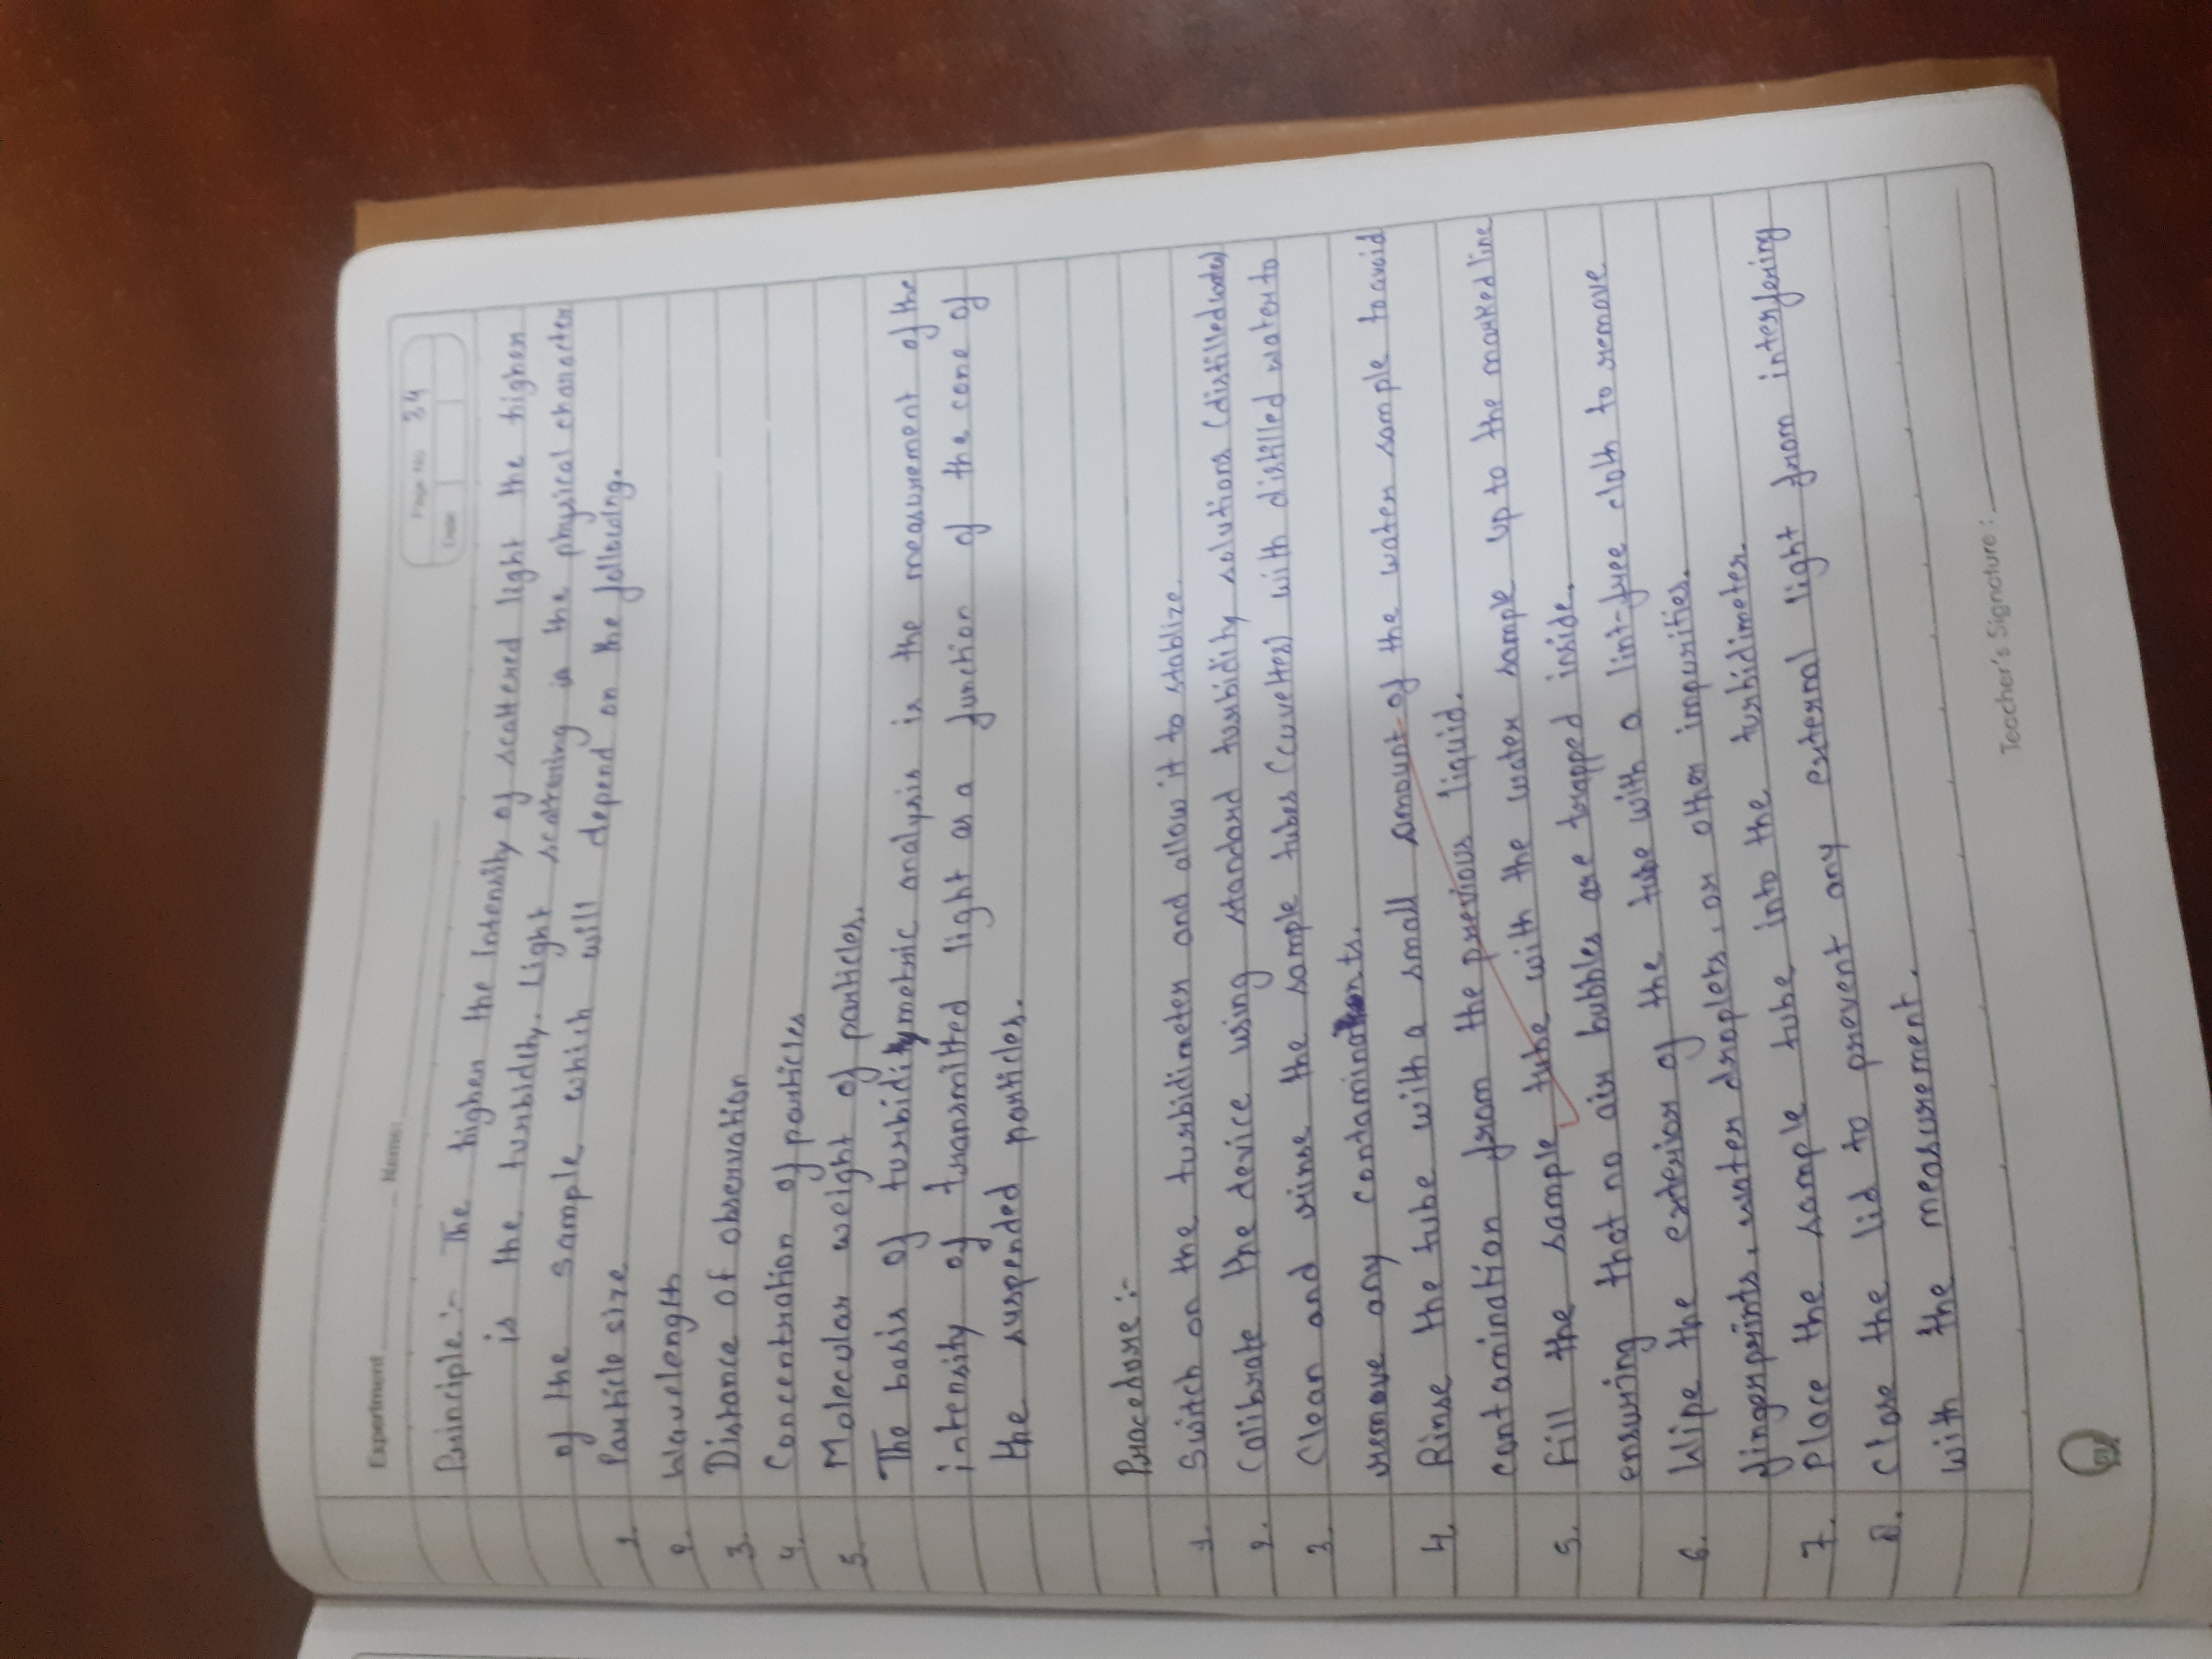 Experiment Name:
Page No 34
Date
Principle :- The higher the Intensity of scattered light the higher
is the turbidity. Light scattering is the physical character
of the sample which will depend on the following.
1. Particle size
2. Wavelength
3. Distance of observation
4. Concentration of particles
5. Molecular weight of particles.
The basis of turbiditymetric analysis is the measurement of the
intensity of transmitted light as a function of the cone of
the suspended particles.
Procedure :-
1. Switch on the turbidimeter and allow it to stablize.
2. Calibrate the device using standard turbidity solutions (distilled water)
3. Clean and rinse the sample tubes (cuvettes) with distilled water to
remove any contaminants.
4. Rinse the tube with a small amount of the water sample to avoid
contamination from the previous liquid.
5. Fill the sample tube with the water sample up to the marked line
ensuring that no air bubbles are trapped inside.
6. Wipe the exterior of the tube with a lint-free cloth to remove
fingerprints, water droplets, or other impurities.
7. Place the sample tube into the turbidimeter.
8. Close the lid to prevent any external light from interfering
with the measurement.
Teacher's Signature :